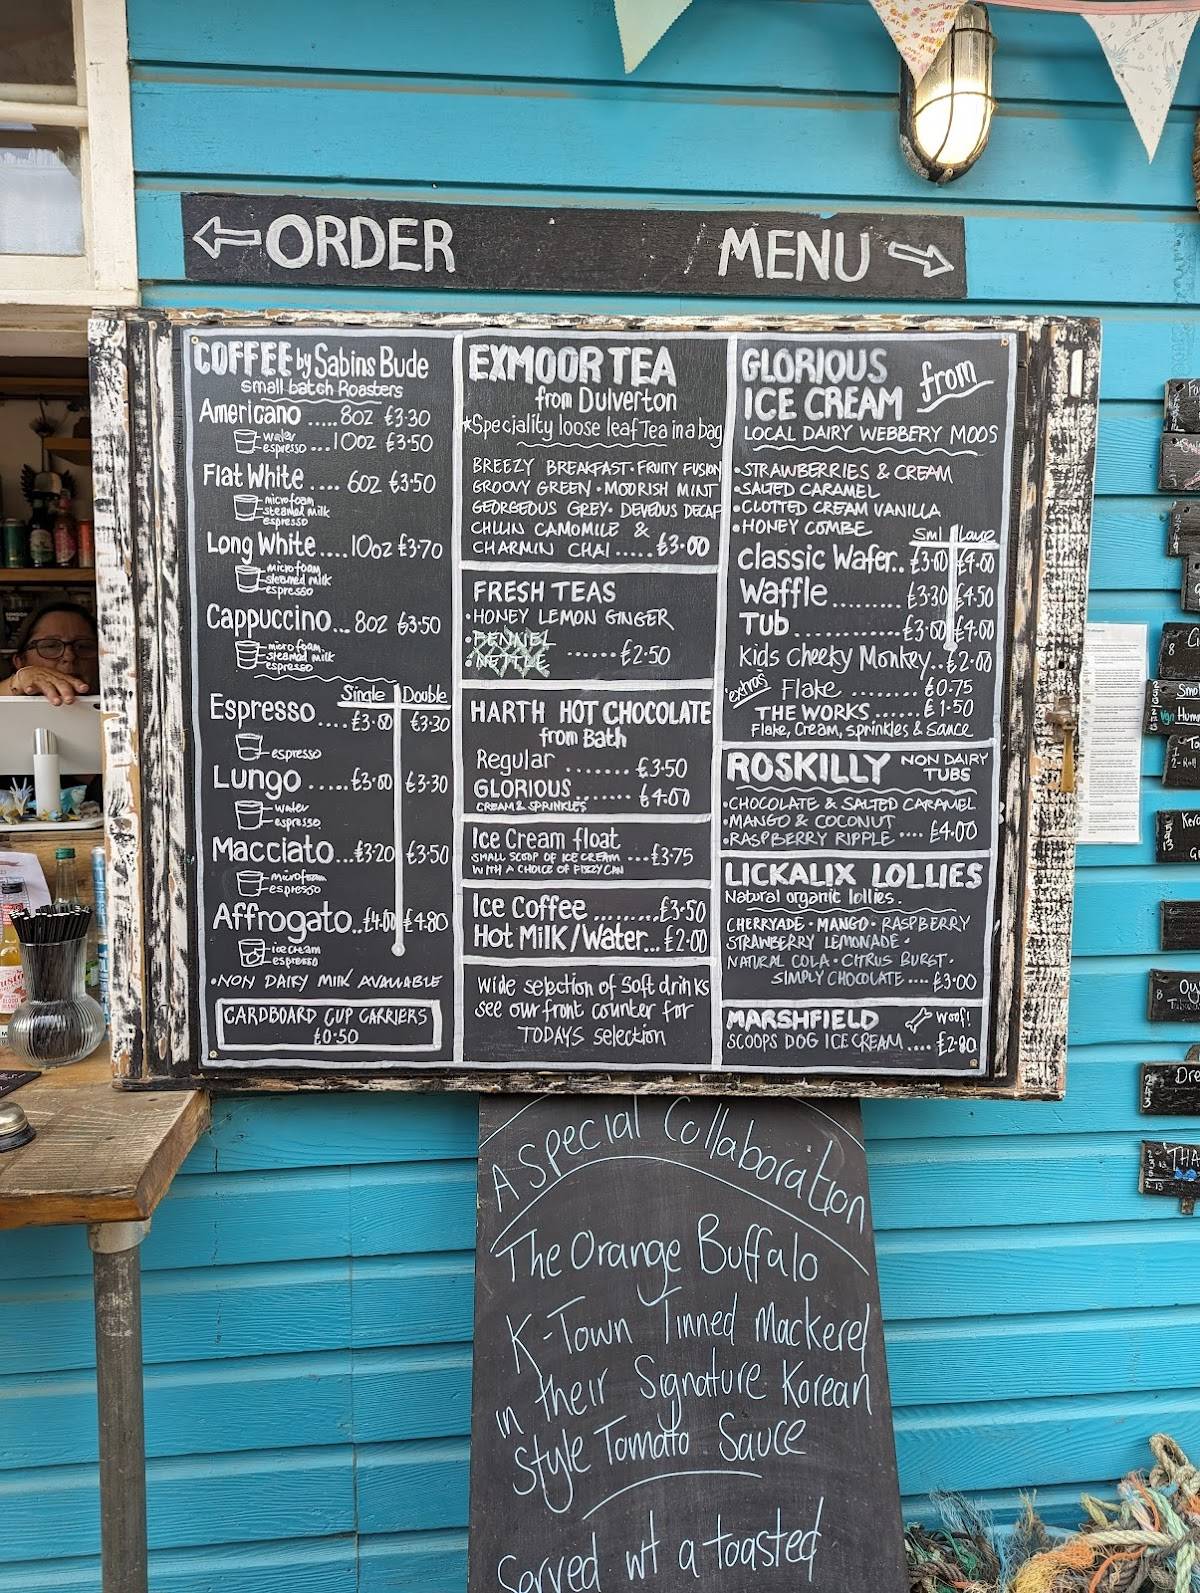 ORDER
MENU
COFFEE by Sabins Bude
small batch Roasters
Americano ..... 8oz £3.30
water
espresso ... 10oz £3.50
Flat White .... 6oz £3.50
microfoam
steamed milk
espresso
Long White .... 10oz £3.70
microfoam
steamed milk
espresso
Cappuccino... 8oz £3.50
microfoam
steamed milk
espresso
Single Double
Espresso.... £3.00 £3.30
espresso
Lungo ..... £3.00 £3.30
water
espresso
Macciato...£3.20 £3.50
microfoam
espresso
Affrogato..£4.00 £4.80
ice cream
espresso
•NON DAIRY MILK AVAILABLE
CARDBOARD CUP CARRIERS
£0.50
EXMOOR TEA
from Dulverton
*Speciality loose leaf Tea in a bag
BREEZY BREAKFAST • FRUITY FUSION
GROOVY GREEN • MOORISH MINT
GEORGEOUS GREY • DEVEOUS DECAF
CHILLIN CAMOMILE &
CHARMIN CHAI ..... £3.00
FRESH TEAS
•HONEY LEMON GINGER
•FENNEL
•NETTLE ...... £2.50
HARTH HOT CHOCOLATE
from Bath
Regular ....... £3.50
GLORIOUS ....... £4.00
CREAM & SPRINKLES
Ice Cream float
SMALL SCOOP OF ICE CREAM ... £3.75
WITH A CHOICE OF FIZZY CAN
Ice Coffee ......... £3.50
Hot Milk/Water... £2.00
Wide selection of Soft drinks
see our front counter for
TODAYS selection
GLORIOUS
ICE CREAM from
LOCAL DAIRY WEBBERY MOOS
•STRAWBERRIES & CREAM
•SALTED CARAMEL
•CLOTTED CREAM VANILLA
•HONEY COMBE
Sml Large
Classic Wafer.. £3.00 £4.00
Waffle ......... £3.30 £4.50
Tub ............. £3.00 £4.00
Kids Cheeky Monkey.. £2.00
extras Flake ........ £0.75
THE WORKS....... £1.50
Flake, Cream, Sprinkles & Sauce
ROSKILLY NON DAIRY
TUBS
•CHOCOLATE & SALTED CARAMEL
•MANGO & COCONUT
•RASPBERRY RIPPLE .... £4.00
LICKALIX LOLLIES
Natural organic lollies.
CHERRYADE • MANGO • RASPBERRY
STRAWBERRY LEMONADE •
NATURAL COLA • CITRUS BURST •
SIMPLY CHOCOLATE .... £3.00
MARSHFIELD woof!
SCOOPS DOG ICE CREAM .... £2.80
A Special Collaboration
The Orange Buffalo
K-Town Tinned Mackerel
in their Signature Korean
Style Tomato Sauce
Served wt a toasted